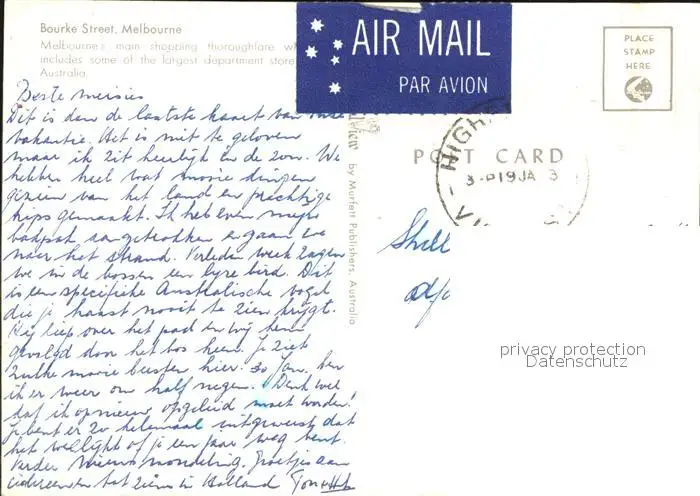 Bourke Street, Melbourne
Melbourne's main shopping thoroughfare
includes some of the largest department store
Australia.
AIR MAIL
PAR AVION
PLACE
STAMP
HERE
POST CARD
HIGH
3-P19JA 3
VI
by Murfett Publishers, Australia
Beste meisies
Dit is dan de laatste kaart van onze
vakantie. Het is niet te geloven
maar ik zit heerlijk in de zon. We
hebben heel wat mooie dingen
gezien van het land en prachtige
trips gemaakt. Ik heb even mijn
badpak aangetrokken en gaan we
naar het strand. Verleden week zagen
we in de bossen een lyre bird. Dit
is een specifieke Australische vogel
die je haast nooit te zien krijgt.
Hij liep over het pad en wij hem
gevolgd door het bos heen. Je ziet
zulke mooie beesten hier. 30 Jan. ben
ik er weer om half negen. Denk wel
dat ik opnieuw opgeleid moet worden!
Je bent er zo helemaal uitgeweest dat
het wel lijkt of je een jaar weg bent.
Verder nieuws mondeling. Groetjes aan
iedereen en tot ziens in Holland
Shell
privacy protection
Datenschutz